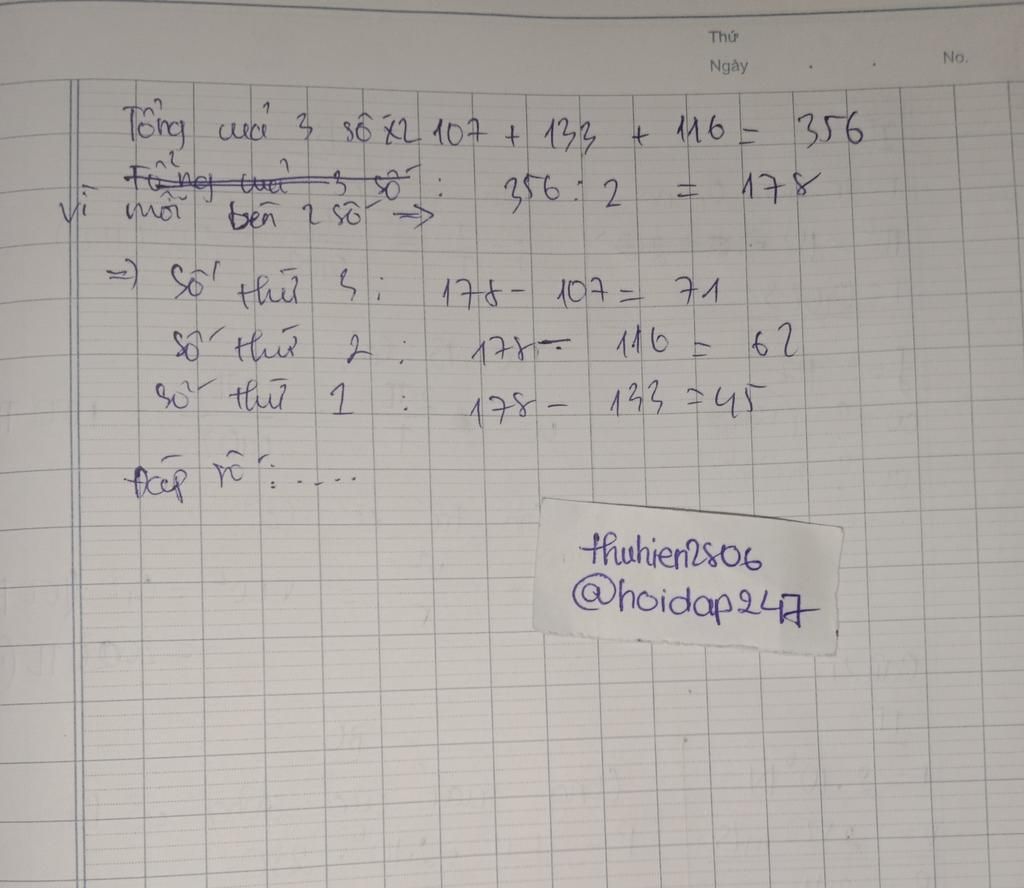 Thứ
Ngày . . No.
Tổng cuả 3 số x2 107 + 133 + 116 = 356
Tổng cuả 3 số : 356 : 2 = 178
Vì mỗi bên 2 số =>
=> Số thứ 3 : 178 - 107 = 71
Số thứ 2 : 178 - 116 = 62
Số thứ 1 : 178 - 133 = 45
Đáp số : .....
thuhien2806
@hoidap247